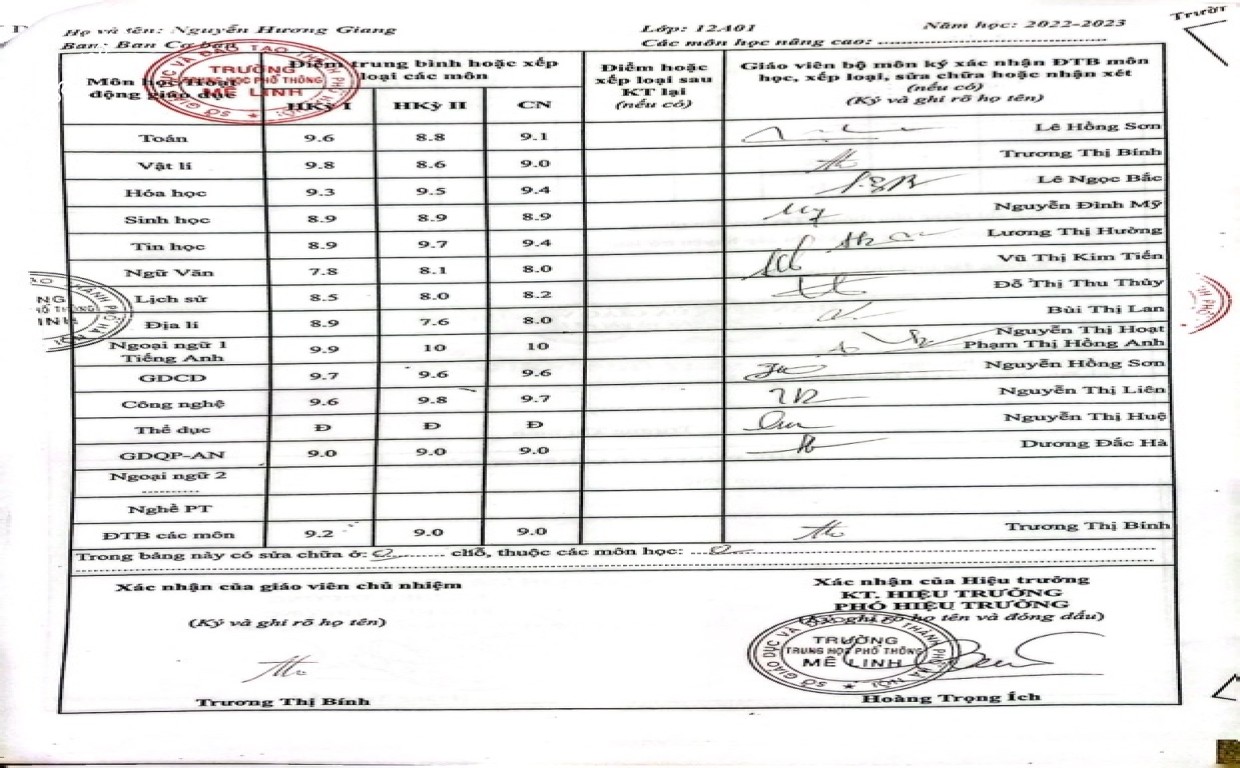 Họ và tên: Nguyễn Hương Giang Lớp: 12A01 Năm học: 2022-2023
Trườn
Ban: Ban Cơ bản Các môn học nâng cao:
Môn học/Hoạt động giáo dục
Điểm trung bình hoặc xếp loại các môn
Điểm hoặc xếp loại sau KT lại (nếu có)
Giáo viên bộ môn ký xác nhận ĐTB môn học, xếp loại, sửa chữa hoặc nhận xét (nếu có) (Ký và ghi rõ họ tên)
HKỳ I HKỳ II CN
Toán 9.6 8.8 9.1 Lê Hồng Sơn
Vật lí 9.8 8.6 9.0 Trương Thị Bính
Hóa học 9.3 9.5 9.4 Lê Ngọc Bắc
Sinh học 8.9 8.9 8.9 Nguyễn Đình Mỹ
Tin học 8.9 9.7 9.4 Lương Thị Hường
Ngữ Văn 7.8 8.1 8.0 Vũ Thị Kim Tiến
Lịch sử 8.5 8.0 8.2 Đỗ Thị Thu Thủy
Địa lí 8.9 7.6 8.0 Bùi Thị Lan
Ngoại ngữ 1 Tiếng Anh 9.9 10 10 Nguyễn Thị Hoạt Phạm Thị Hồng Anh
GDCD 9.7 9.6 9.6 Nguyễn Hồng Sơn
Công nghệ 9.6 9.8 9.7 Nguyễn Thị Liên
Thể dục Đ Đ Đ Nguyễn Thị Huệ
GDQP-AN 9.0 9.0 9.0 Dương Đắc Hà
Ngoại ngữ 2
Nghề PT
ĐTB các môn 9.2 9.0 9.0 Trương Thị Bính
Trong bảng này có sửa chữa ở: 0 chỗ, thuộc các môn học: 0
Xác nhận của giáo viên chủ nhiệm
(Ký và ghi rõ họ tên)
Trương Thị Bính
Xác nhận của Hiệu trưởng
KT. HIỆU TRƯỞNG
PHÓ HIỆU TRƯỞNG
họ tên và đóng dấu)
TRƯỜNG
TRUNG HỌC PHỔ THÔNG
MÊ LINH
Hoàng Trọng Ích
TRƯỜNG
TRUNG HỌC PHỔ THÔNG
MÊ LINH